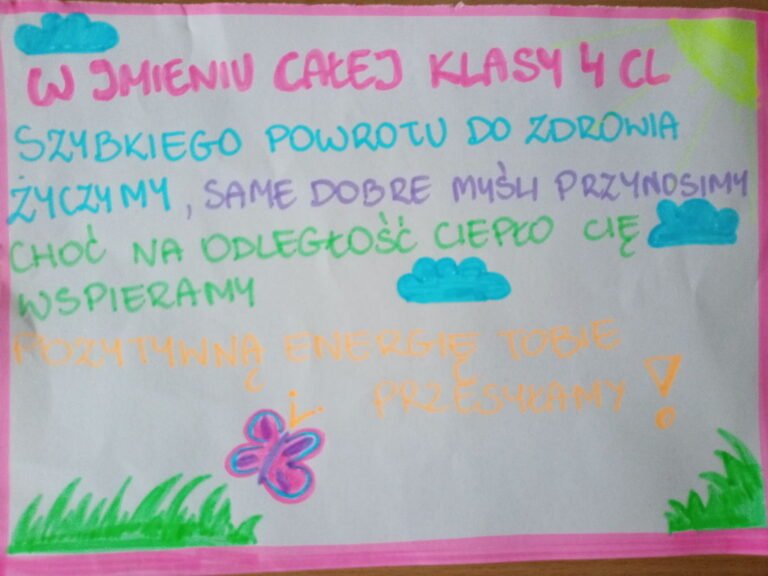 W IMIENIU CAŁEJ KLASY 4 CL
SZYBKIEGO POWROTU DO ZDROWIA
ŻYCZYMY, SAME DOBRE MYŚLI PRZYNOSIMY
CHOĆ NA ODLEGŁOŚĆ CIEPŁO CIĘ
WSPIERAMY
POZYTYWNĄ ENERGIĘ TOBIE
PRZESYŁAMY!